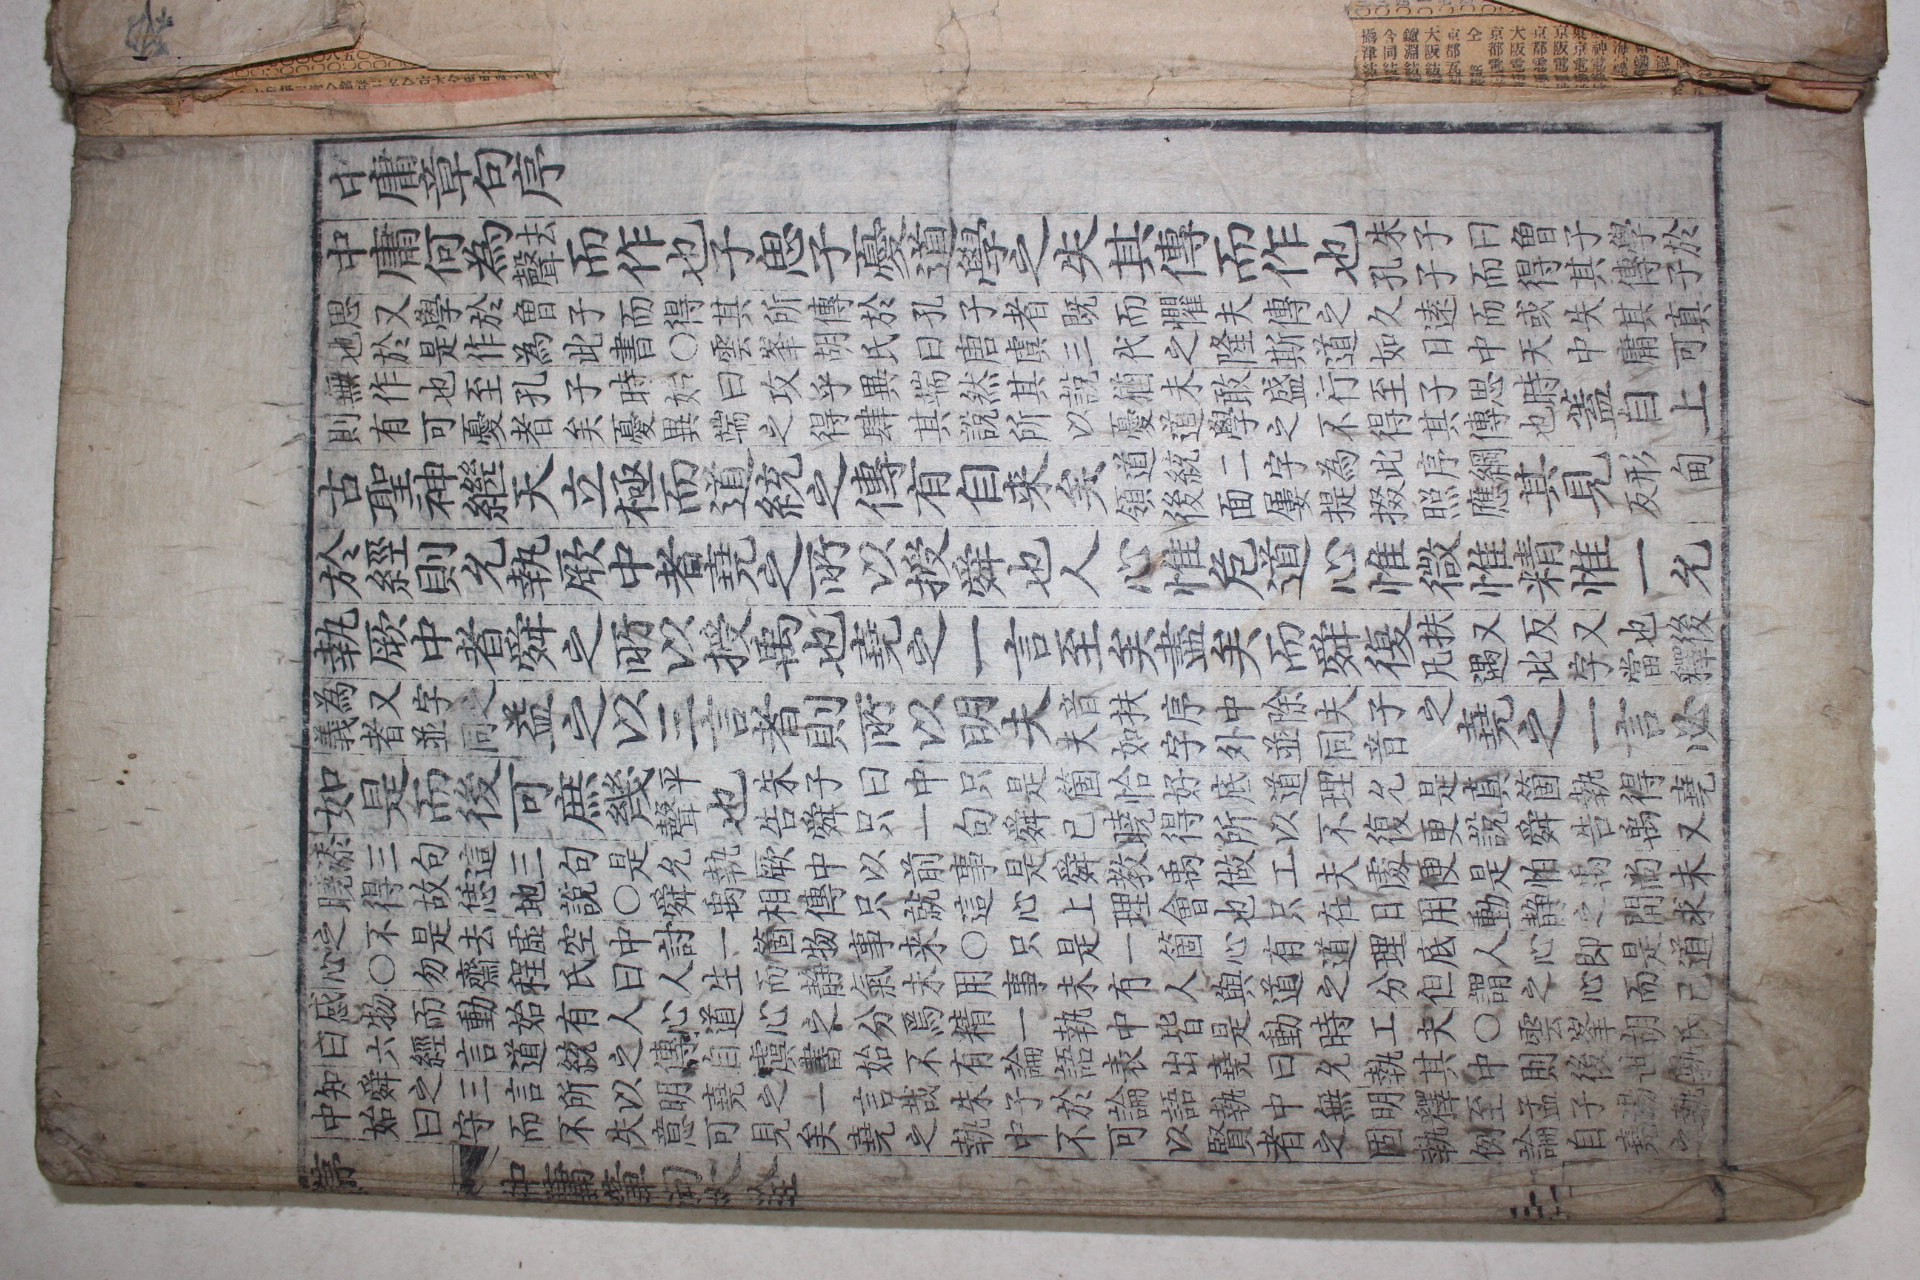 中庸章句序
中庸何為去聲而作也子思子憂道學之失其傳而作也朱子曰曾子學於
孔子而得其傳子
思又學於曾子而得其所傳於孔子者既而懼夫傳之久遠而或失其真
也於是作為此書○雲峯胡氏曰唐虞三代之隆斯道如日中天中庸可
無作也至孔子時始曰攻乎異端然其說猶未敢盛行至子思時
則有可憂者矣憂異端之得肆其說所以憂道學之不得其傳也蓋自上
古聖神繼天立極而道統之傳有自来矣道統二字為此序綱
領後面屢提掇照應其見形甸反
於經則允執厥中者堯之所以授舜也人心惟危道心惟微惟精惟一允
執厥中者舜之所以授禹也堯之一言至矣盡矣而舜復扶又反又也後
凡遇此字當釋
為又字之
義者並同益之以三言者則所以明夫音扶序中除夫子之
夫如字外並同音堯之一言必
如是而後可庶幾平聲也朱子曰中只是箇恰好底道理允是真箇執得堯
告舜只一句舜已曉得所以不復更說舜告禹又
添三句這三句是允執厥中以前事是舜教禹做工夫處便是怕禹尚未
曉得故恁地說○舜禹相傳只就這心上理會也只在日用動靜之間求
之不是去虛空中討一箇物事来○只是一箇心有道理底人心即是道
心○勿齋程氏曰人生而静氣未用事未有人與道之分但謂之心而已
感物而動始有人心道心之分焉精一執中皆是動時工夫○雲峯胡氏
曰六經言道統之傳自虞書始不有論語表出堯曰允執其中則後世孰
知舜之三言所以明堯之一言哉朱子於論語執中無明釋至孟子湯執
中始曰守而不失意可見矣堯之執中不可以賢者之固執例論自堯之